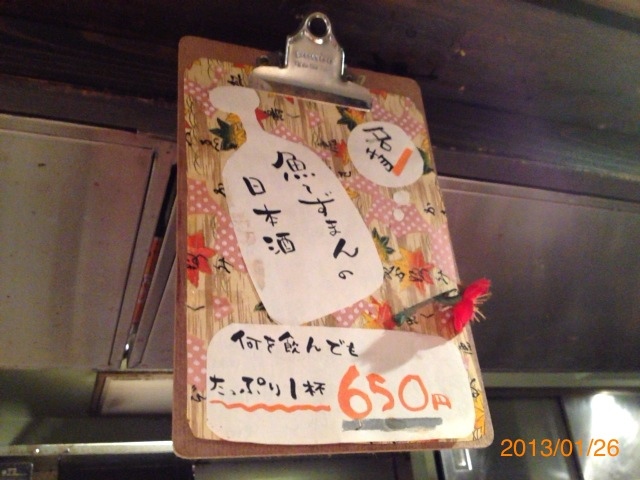 魚ずばんの
日本酒
何を飲んでも
たっぷり1杯 650円
2013/01/26